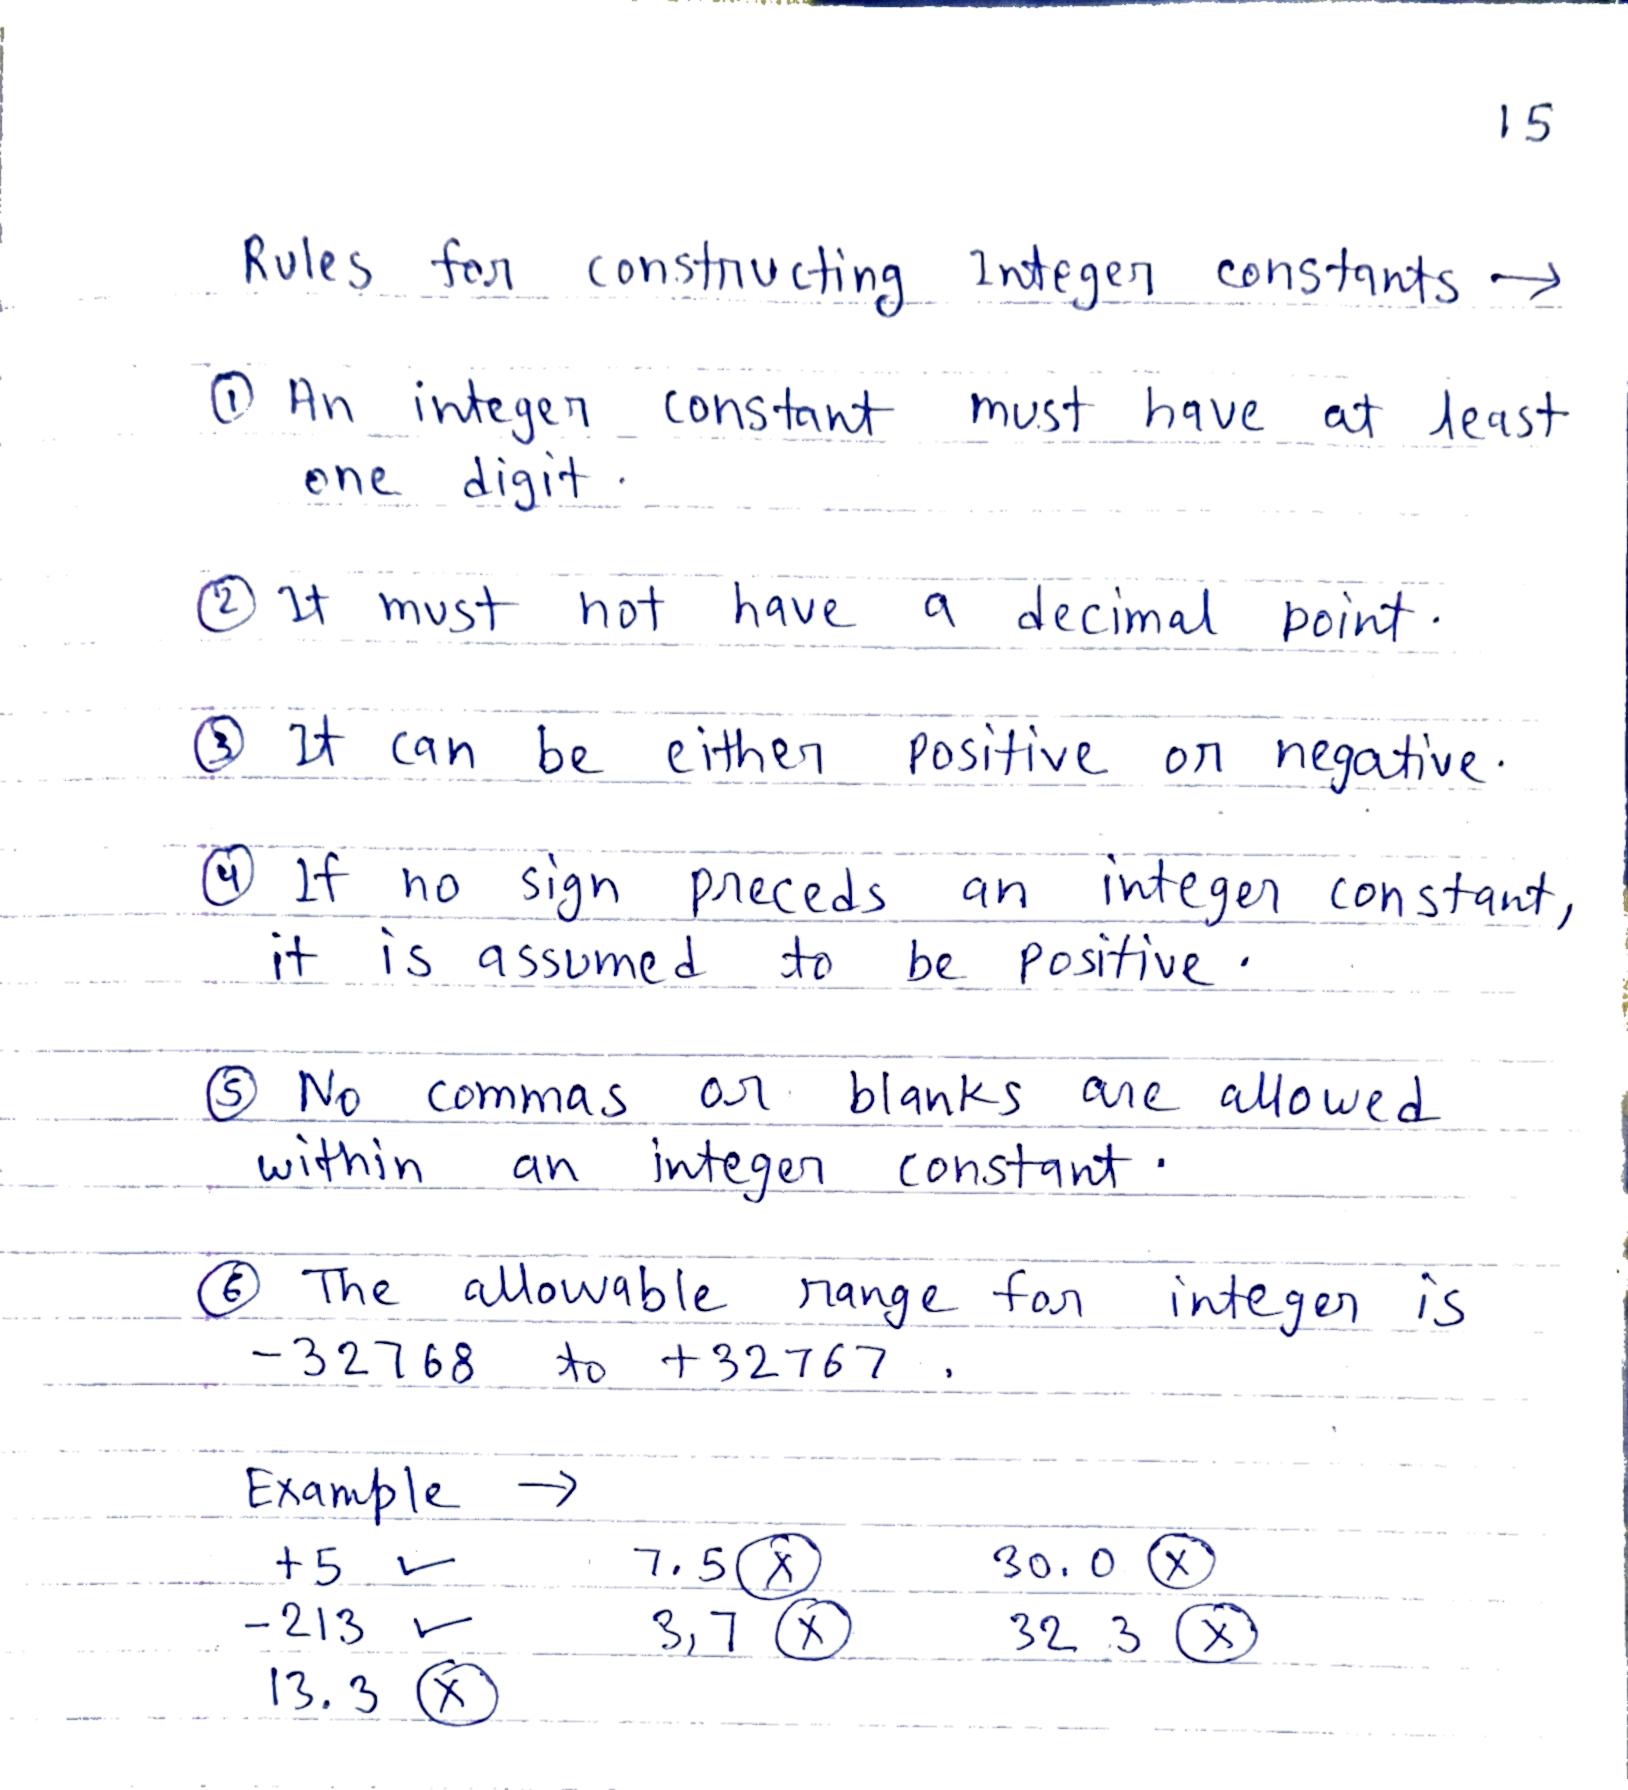 15
Rules for constructing Integer constants →
① An integer constant must have at least
one digit.
② It must not have a decimal point.
③ It can be either positive or negative.
④ If no sign preceds an integer constant,
it is assumed to be positive.
⑤ No commas or blanks are allowed
within an integer constant.
⑥ The allowable range for integer is
-32768 to +32767.
Example →
+5 ✓ 7.5 ⓧ 30.0 ⓧ
-213 ✓ 3,7 ⓧ 32 3 ⓧ
13.3 ⓧ